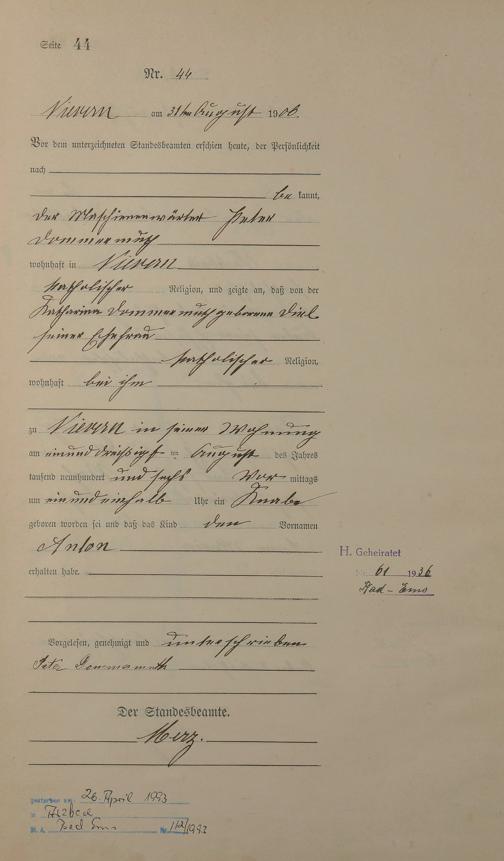 Seite 44
Nr. 44
Nievern am 31ten August 1906.
Vor dem unterzeichneten Standesbeamten erschien heute, der Persönlichkeit
nach
be kannt,
der Maschienenwärter Peter
Dommermuth
wohnhaft in Nievern
katholischer Religion, und zeigte an, daß von der
Katharina Dommermuth geborene Diel
seiner Ehefrau
katholischer Religion,
wohnhaft bei ihm
zu Nievern in seiner Wohnung
am einunddreißigst = August des Jahres
tausend neunhundert und sechs Vor mittags
um ein und einhalb Uhr ein Knabe
geboren worden sei und daß das Kind den Vornamen
Anton
erhalten habe.
H. Geheiratet
Nr. 61 1936
Bad-Ems
Vorgelesen, genehmigt und unterschrieben
Peter Dommermuth
Der Standesbeamte.
Merz.
gestorben am: 26. April 1993
in
St. A. Bad Ems Nr. /1993